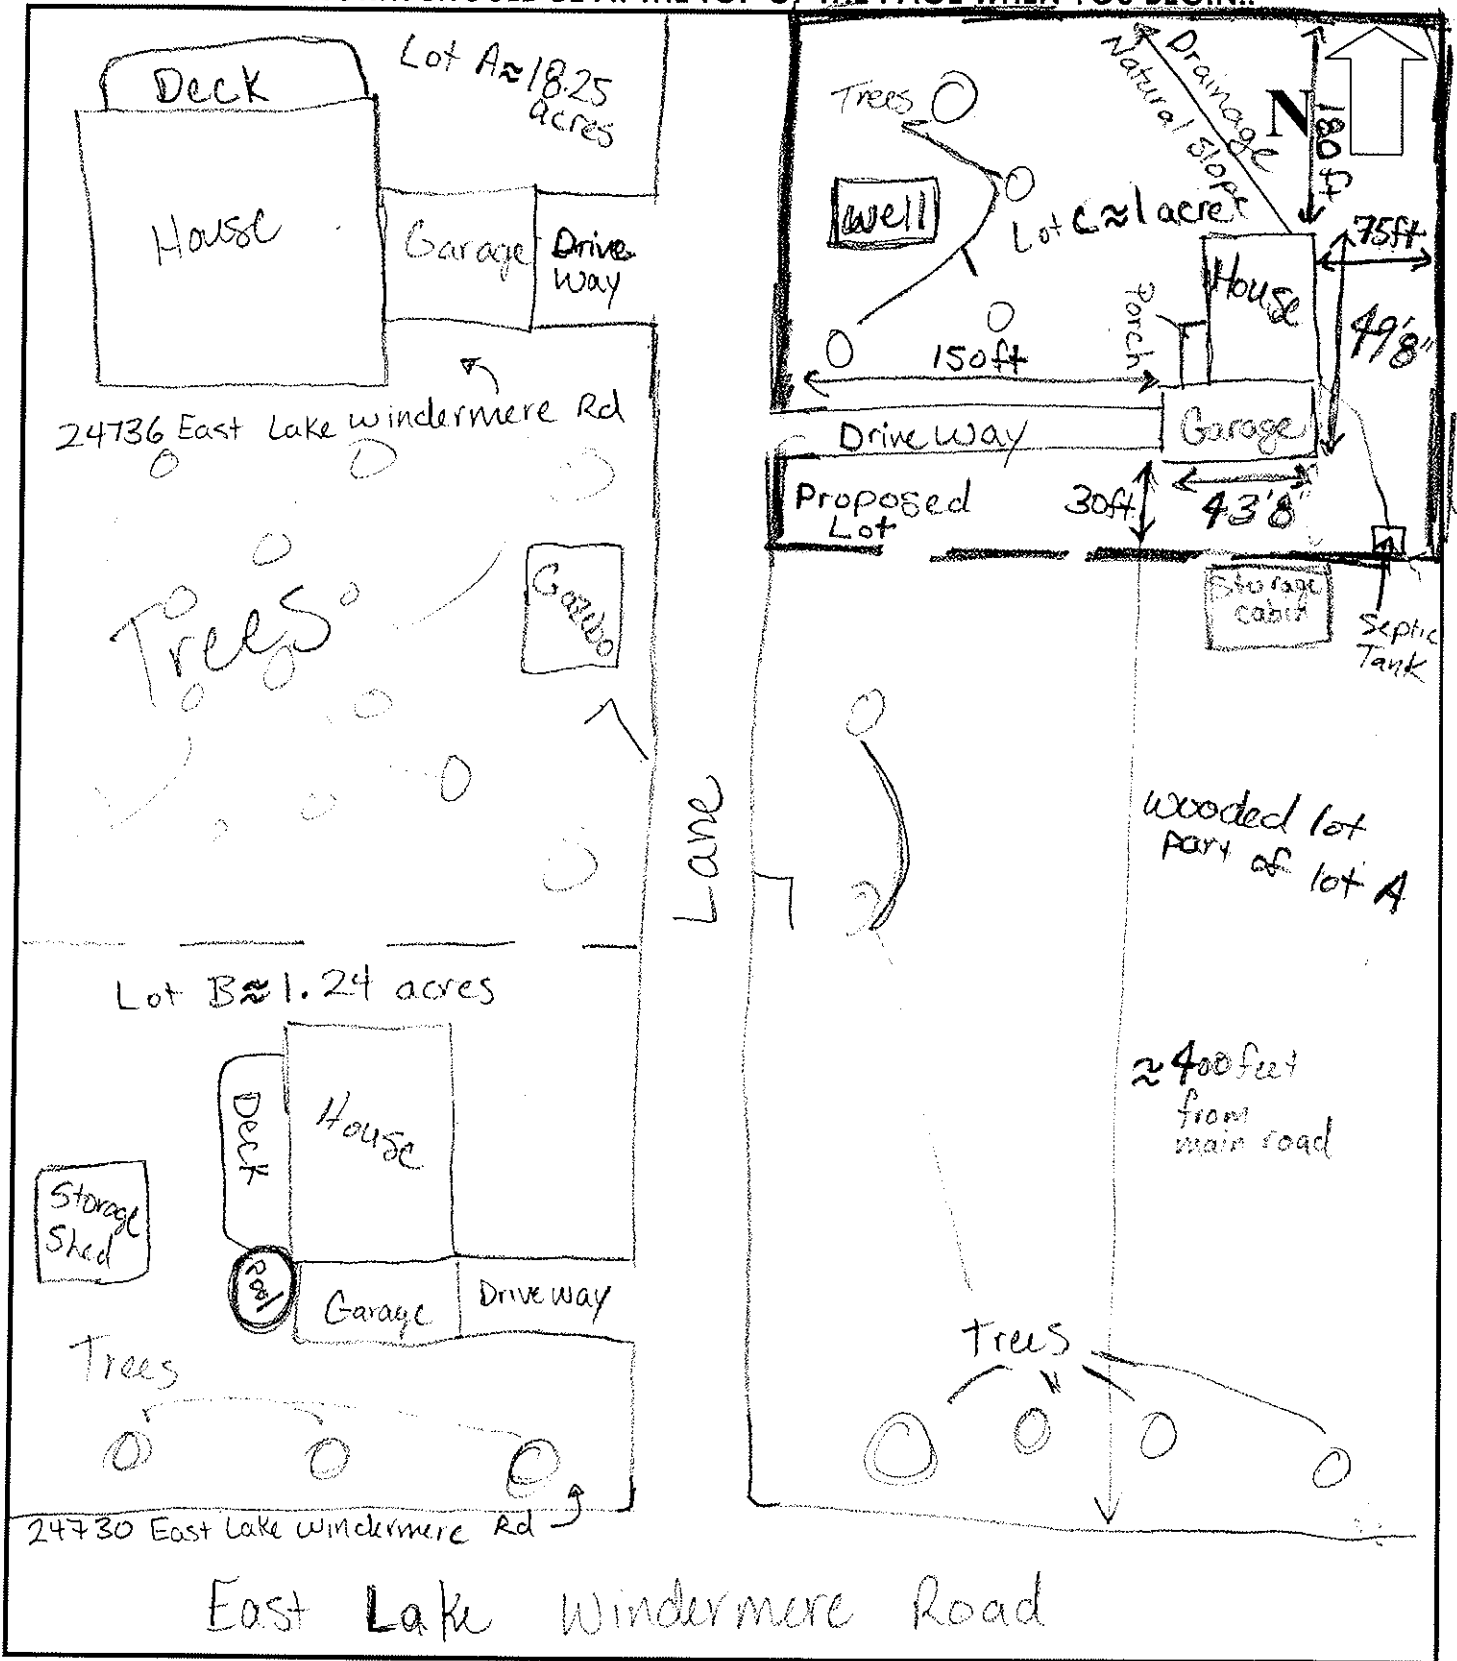 Deck
Lot A≈18.25
acres
House
Garage
Drive
Way
24736 East Lake Windermere Rd
Trees
Gazebo
Lot B≈1.24 acres
House
Deck
Storage
Shed
Pool
Garage
Driveway
Trees
24730 East Lake Windermere Rd
Lane
Trees
Well
Drainage
Natural Slope
N
180 ft
Lot C≈1 acre
75ft
House
Porch
49'8"
150ft
Drive Way
Garage
Proposed
Lot
30ft
43'8"
Storage
cabin
Septic
Tank
wooded lot
part of lot A
≈400 feet
from
main road
Trees
East Lake Windermere Road